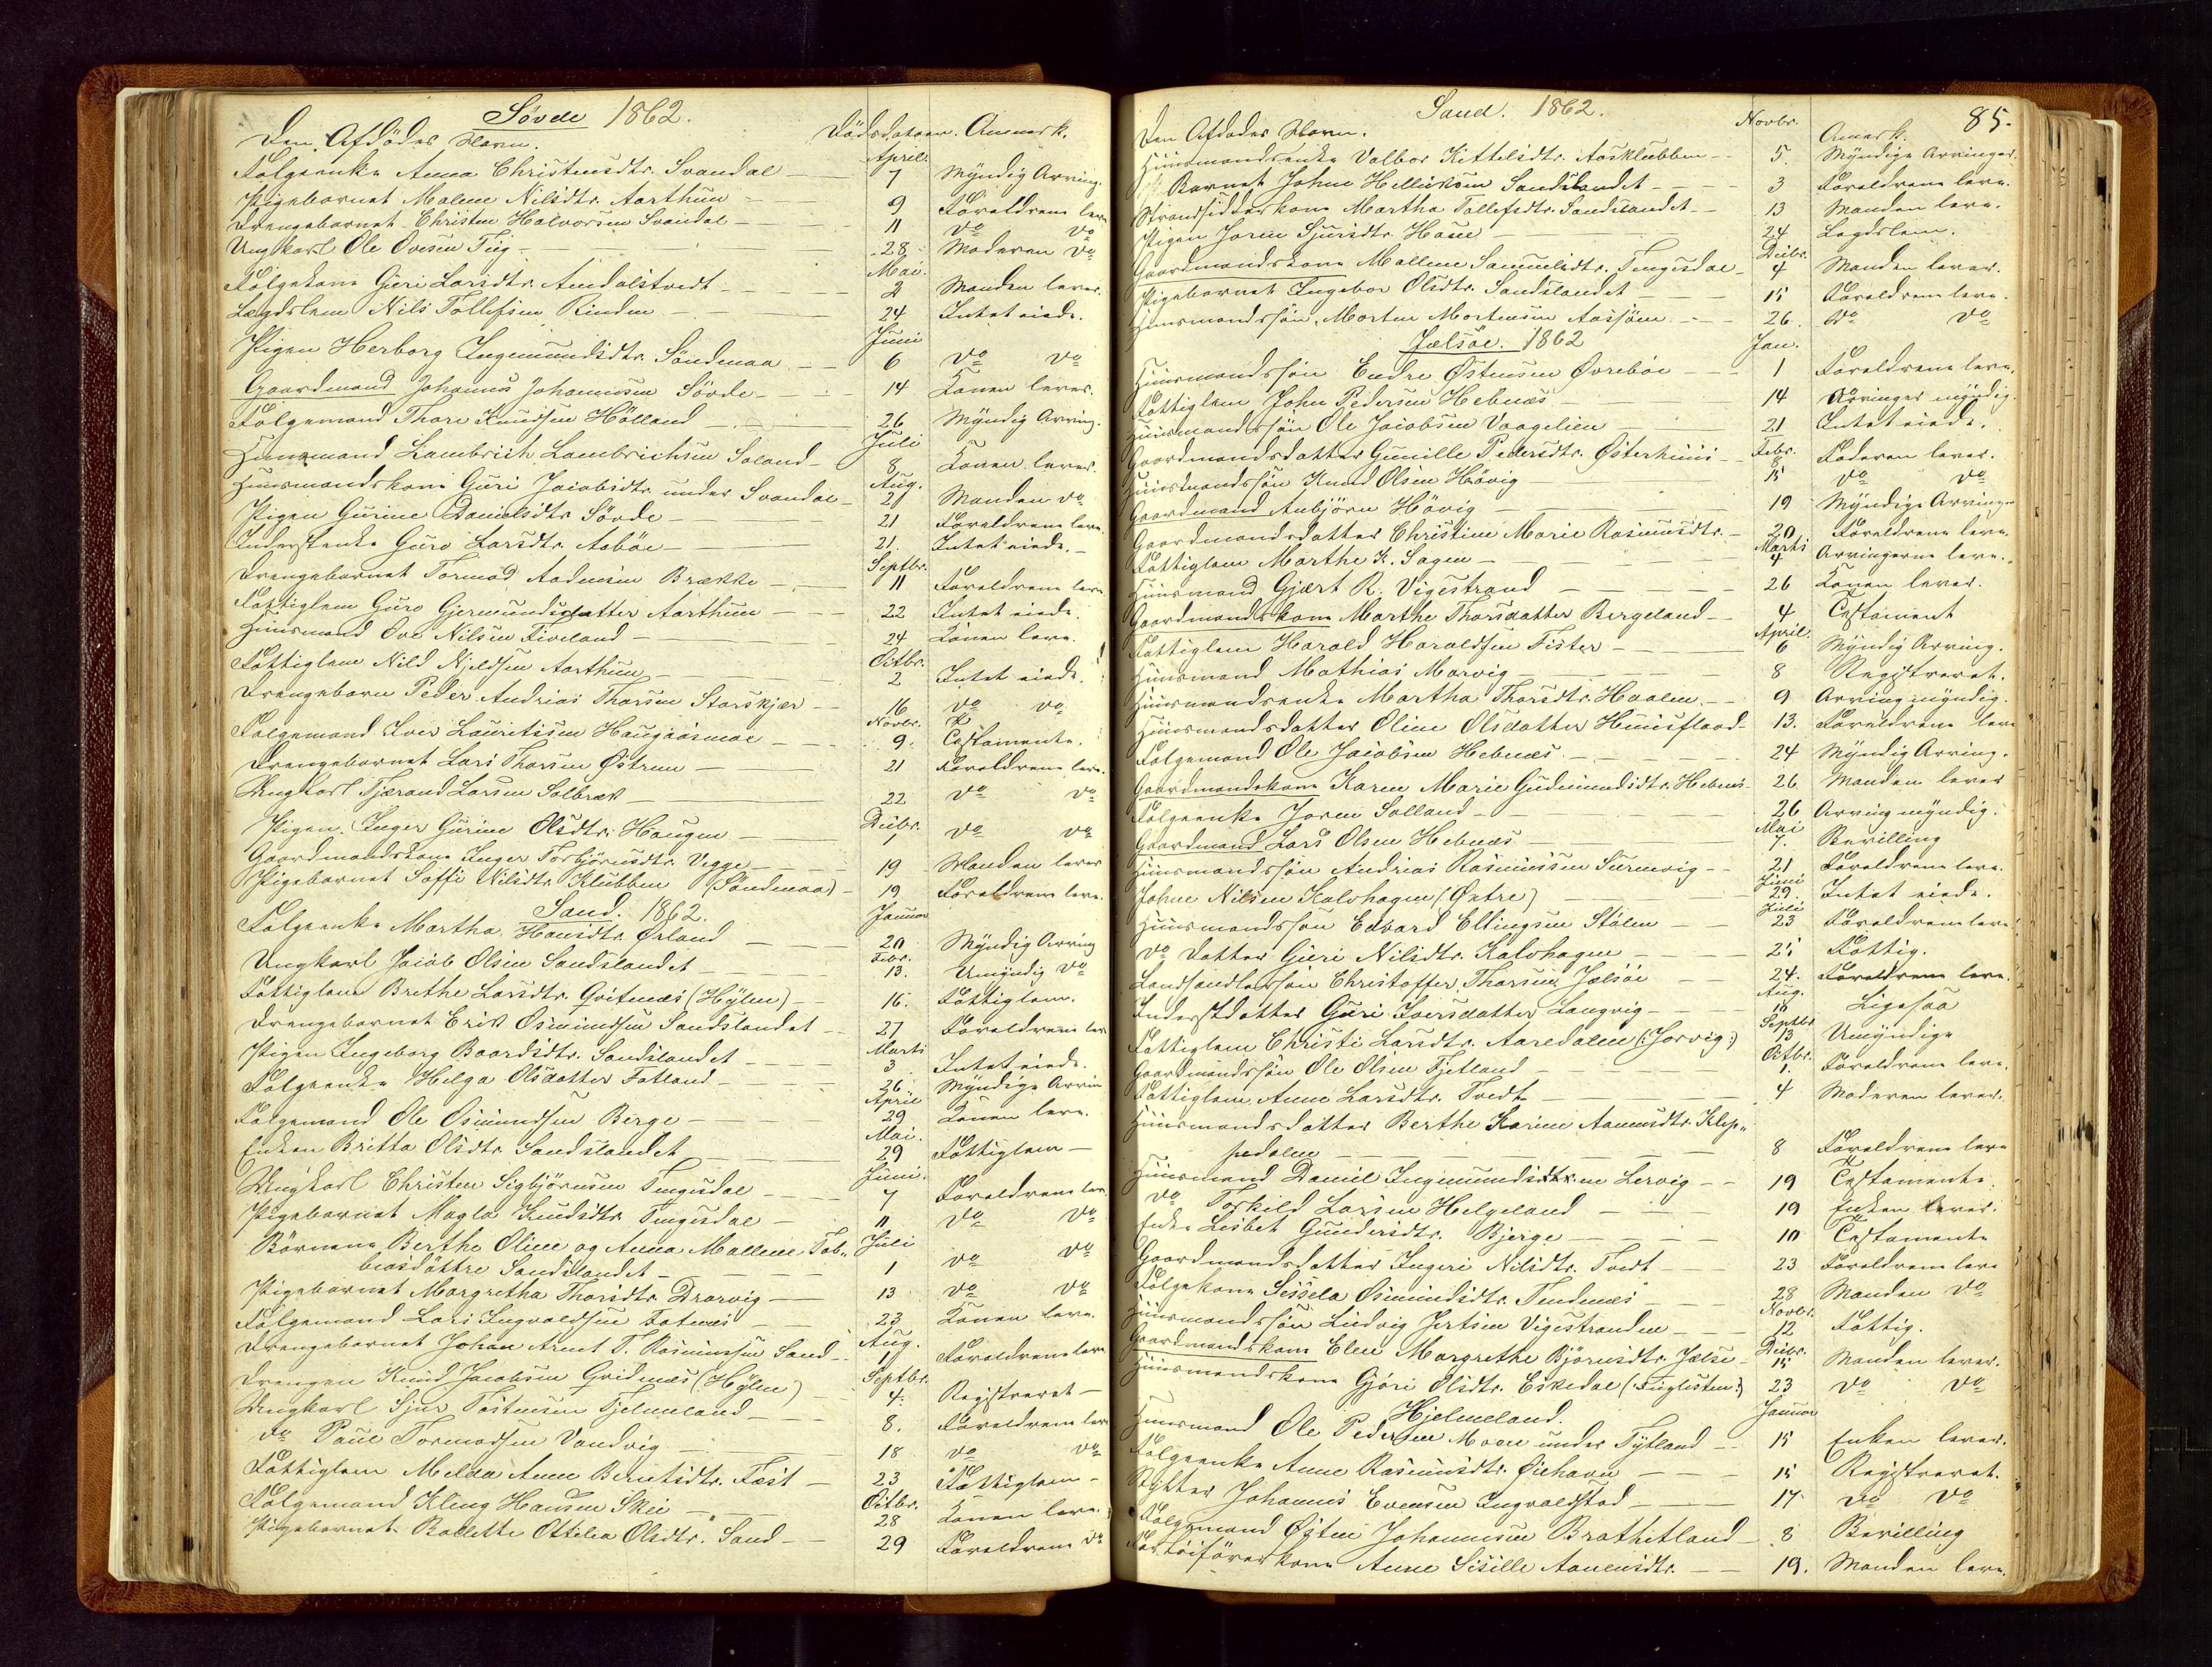 Søvde 1862.
Den Afdødes Navn. Dødsdatoen. Anmerk.
April
Følgeenke Anna Christensdtr. Svandal — 7 Myndig Arving.
Pigebarnet Malene Nilsdtr. Aarthun — 9 Forældrene leve
Drengebarnet Christen Halvorsen Svandal — 11 do do
Ungkarl Ole Ovesen Tug — 28 Moderen do
Mai.
Følgekone Guri Larsdtr. Amdalstvedt — 2 Manden lever.
Lægdslem Nils Tollefsen Rinden — 24 Intet eiede.
Juni
Pigen Herborg Ingemundsdtr. Søndenaa — 6 do do
Gaardmand Johannes Johannesen Søvde — 14 Konen lever.
Følgemand Thore Knudsen Hölland — 26 Myndig Arving.
Juli
Huusmand Lambrich Lambrichsen Soland — 8 Konen lever.
Aug.
Huusmandskone Guri Jacobsdtr. under Svandal — 21 Manden do
Pigen Gurine Danielsdtr. Søvde — 21 Forældrene leve.
Inderstenke Guro Larsdtr. Asböe — 21. Intet eiede. —
Septbr.
Drengebarnet Tormod Aadnesen Brække — 11 Forældrene leve
Fattiglem Guro Gjermundsdatter Aarthun — 22 Intet eiede
Huusmand Ove Nilsen Fiveland — 24 Konen leve.
Octbr.
Fattiglem Nils Njeldsen Aarthun — 2 Intet eiede.
Drengebarn Peder Andreas Thorsen Storskjær — 16 do do
Novbr.
Følgemand Iver Lauritzsen Haugaasmoe — 9. Testamente.
Drengebarnet Lars Thorsen Østrem — 21 Forældrene leve.
Ungkarl Tjerand Larsen Solbræk — 22 do do
Decbr.
Pigen Inger Gurine Olsdtr. Haugen — 1 do do
Gaardmandskone Inger Torbjörnsdtr. Vegge — 19 Manden lever
Pigebarnet Soffi Nilsdtr. Klubben (Søndenaa) — 19 Forældrene leve.
Sand. 1862.
Januar
Følgeenke Martha Hansdtr. Ørland — 20 Myndig Arving
Febr.
Ungkarl Jacob Olsen Sandslandet — 13. Umyndig do
Fattiglem Brethe Larsdtr. Qvitenæs (Hylen) — 16. Fattiglem.
Drengebarnet Erik Osmundsen Sandslandet — 27 Forældrene leve
Marts
Pigen Ingeborg Baardsdtr. Sandslandet — 3 Intet eiede.
Følgeenke Helga Olsdatter Fatland — 26 Myndige Arvin
April
Følgemand Ole Osmundsen Berge — 29 Konen leve.
Mai.
Enken Britta Olsdtr. Sandslandet — 29 Fattiglem —
Juni.
Ungkarl Christen Sigbjörnsen Tengesdal — 7 Forældrene leve
Pigebarnet Magla Knudsdtr. Tengesdal — 11 do do
Juli
Börnene Berthe Oline og Anna Mallene Tob„
biasdöttre Sandslandet — 1 do do
Pigebarnet Margretha Thorsdtr. Drarvig — 13 do do
Følgemand Lars Ingvaldsen Fatnes — 23 Konen leve.
Aug.
Drengebarnet Johan Arent T. Rasmussen Sand — 1 Forældrene leve
Septbr.
Drengen Knud Jacobsen Qvidnæs (Hylen) — 4. Registreret —
Ungkarl Sjur Tostensen Tjelmeland — 8. Forældrene leve
do Paul Tormodsen Vandvig — 18 do do
Fattiglem Melda Anne Berntsdtr. Fæst — 23 Fattiglem —
Octbr.
Følgemand Kling Hansen Skei — 28 Konen leve.
Pigebarnet Rallette Ottilia Olsdtr. Sand — 29 Forældrene do
Sand. 1862. 85.
Den Afdødes Navn. Novbr. Anmerk.
Huusmandsenke Valbor Kittelsdtr. Aasklubben — 5. Myndige Arvinger.
Barnet Johne Helliksen Sandslandet — 3 Forældrene leve.
Strandsidderkone Martha Tollefsdtr. Sandslandet — 13 Manden leve.
Pigen Joren Sjursdtr. Haue — 24 Lægdslem.
Decbr.
Gaardmandskone Mallene Samuelsdtr. Tengesdal — 4 Manden lever.
Pigebarnet Ingebor Olsdtr. Sandslandet — 15 Forældrene leve.
Huusmandssøn Morten Mortensen Aasjøen — 26. do do
Jælsöe. 1862
Jan.
Huusmandssøn Endre Østensen Øvreböe — 1 Forældrene leve.
Fattiglem John Pedersen Hebnæs — 14 Arvinger myndig.
Huusmandssøn Ole Jacobsen Vaagelien — 21 Intet eiede.
Febr.
Gaardmandsdatter Gunille Pedersdtr. Østerhuus — 8 Faderen lever.
Huusmandssøn Knud Olsen Høvig — 15 do do
Gaardmand Anbjörn Høvig — 19 Myndige Arvinge
Gaardmandsdatter Christine Marie Rasmusdtr. — 20 Forældrene leve.
Marts
Fattiglem Marthe K. Sagen — 4 Arvingerne leve.
Huusmand Gjært R. Vigestrand — 26 Konen lever.
Gaardmandskone Marthe Thorsdatter Bergeland — 4 Testament
April.
Fattiglem Harald Haraldsen Fister — 6 Myndig Arving.
Huusmand Mathias Marvig — 8 Registreret.
Huusmandsenke Martha Thorsdtr. Haalen — 9 Arving myndig.
Huusmandsdatter Oline Olsdatter Huusflaad — 13. Forældrene leve
Følgemand Ole Jacobsen Hebnæs — 24 Myndig Arving.
Gaardmandskone Karen Marie Gudmundsdtr. Hebnes — 26 Manden lever
Følgeenke Joren Solland — 26 Arving myndig.
Mai
Gaardmand Lars Olsen Hebnæs — 7. Bevilling
Huusmandssøn Andreas Rasmussen Surnevig — 21 Forældrene leve.
Juni
Johne Nilsen Kalvhagen (Øvtre) — 29. Intet eiede.
Juli
Huusmandssøn Edvard Ellingsen Stølen — 23 Forældrene leve.
do Datter Guri Nilsdtr. Kalvhagen — 25 Fattig.
Landhandlersøn Christoffer Thorsen Jælsöe — 24. Forældrene leve.
Aug.
Inderstdatter Guri Iversdatter Langvig — 11 Ligesaa
Septbr.
Fattiglem Christi Larsdtr. Aaredalen (: Jorvig :) 13 Umyndige
Octbr.
Gaardmandssøn Ole Olsen Fjetland — 1. Forældrene leve.
Fattiglem Anne Larsdtr. Tvedt — 4 Moderen lever.
Huusmandsdatter Berthe Karine Aamundsdtr. Klep„
pedalen — 8 Forældrene leve
Huusmand Daniel Ingemundsen Lervig — 19 Testamente.
do Torkild Larsen Helgeland — 19 Enken lever.
Enke Lisbet Gundersdtr. Bjerge — 10 Testamente
Gaardmandsdatter Ingeri Nilsdtr. Tvedt — 23 Forældrene leve
Følgekone Sessela Osmundsdtr. Tendenæs — 28 Manden do
Novbr.
Huusmandssøn Ludvig Jertsen Vigestranden — 12 Fattig.
Decbr.
Gaardmandskone Elen Margrethe Björnsdtr. Jælse — 15 Manden lever.
Huusmandskone Gjóri Olsdtr. Eskedal (: Fuglesten :) 23 do do
Hjelmeland.
Januar
Huusmand Ole Pedersen Moen under Tytland — 15 Enken lever.
Følgeenke Anne Rasmusdtr. Øiehavn — 15 Registreret.
Rytter Johannes Evensen Ingvaldstad — 17 do do
Følgemand Østen Johannesen Brathetland — 8 Bevilling
Fartøiförerkone Anne Sisille Aanensdtr. — 19. Manden leve.